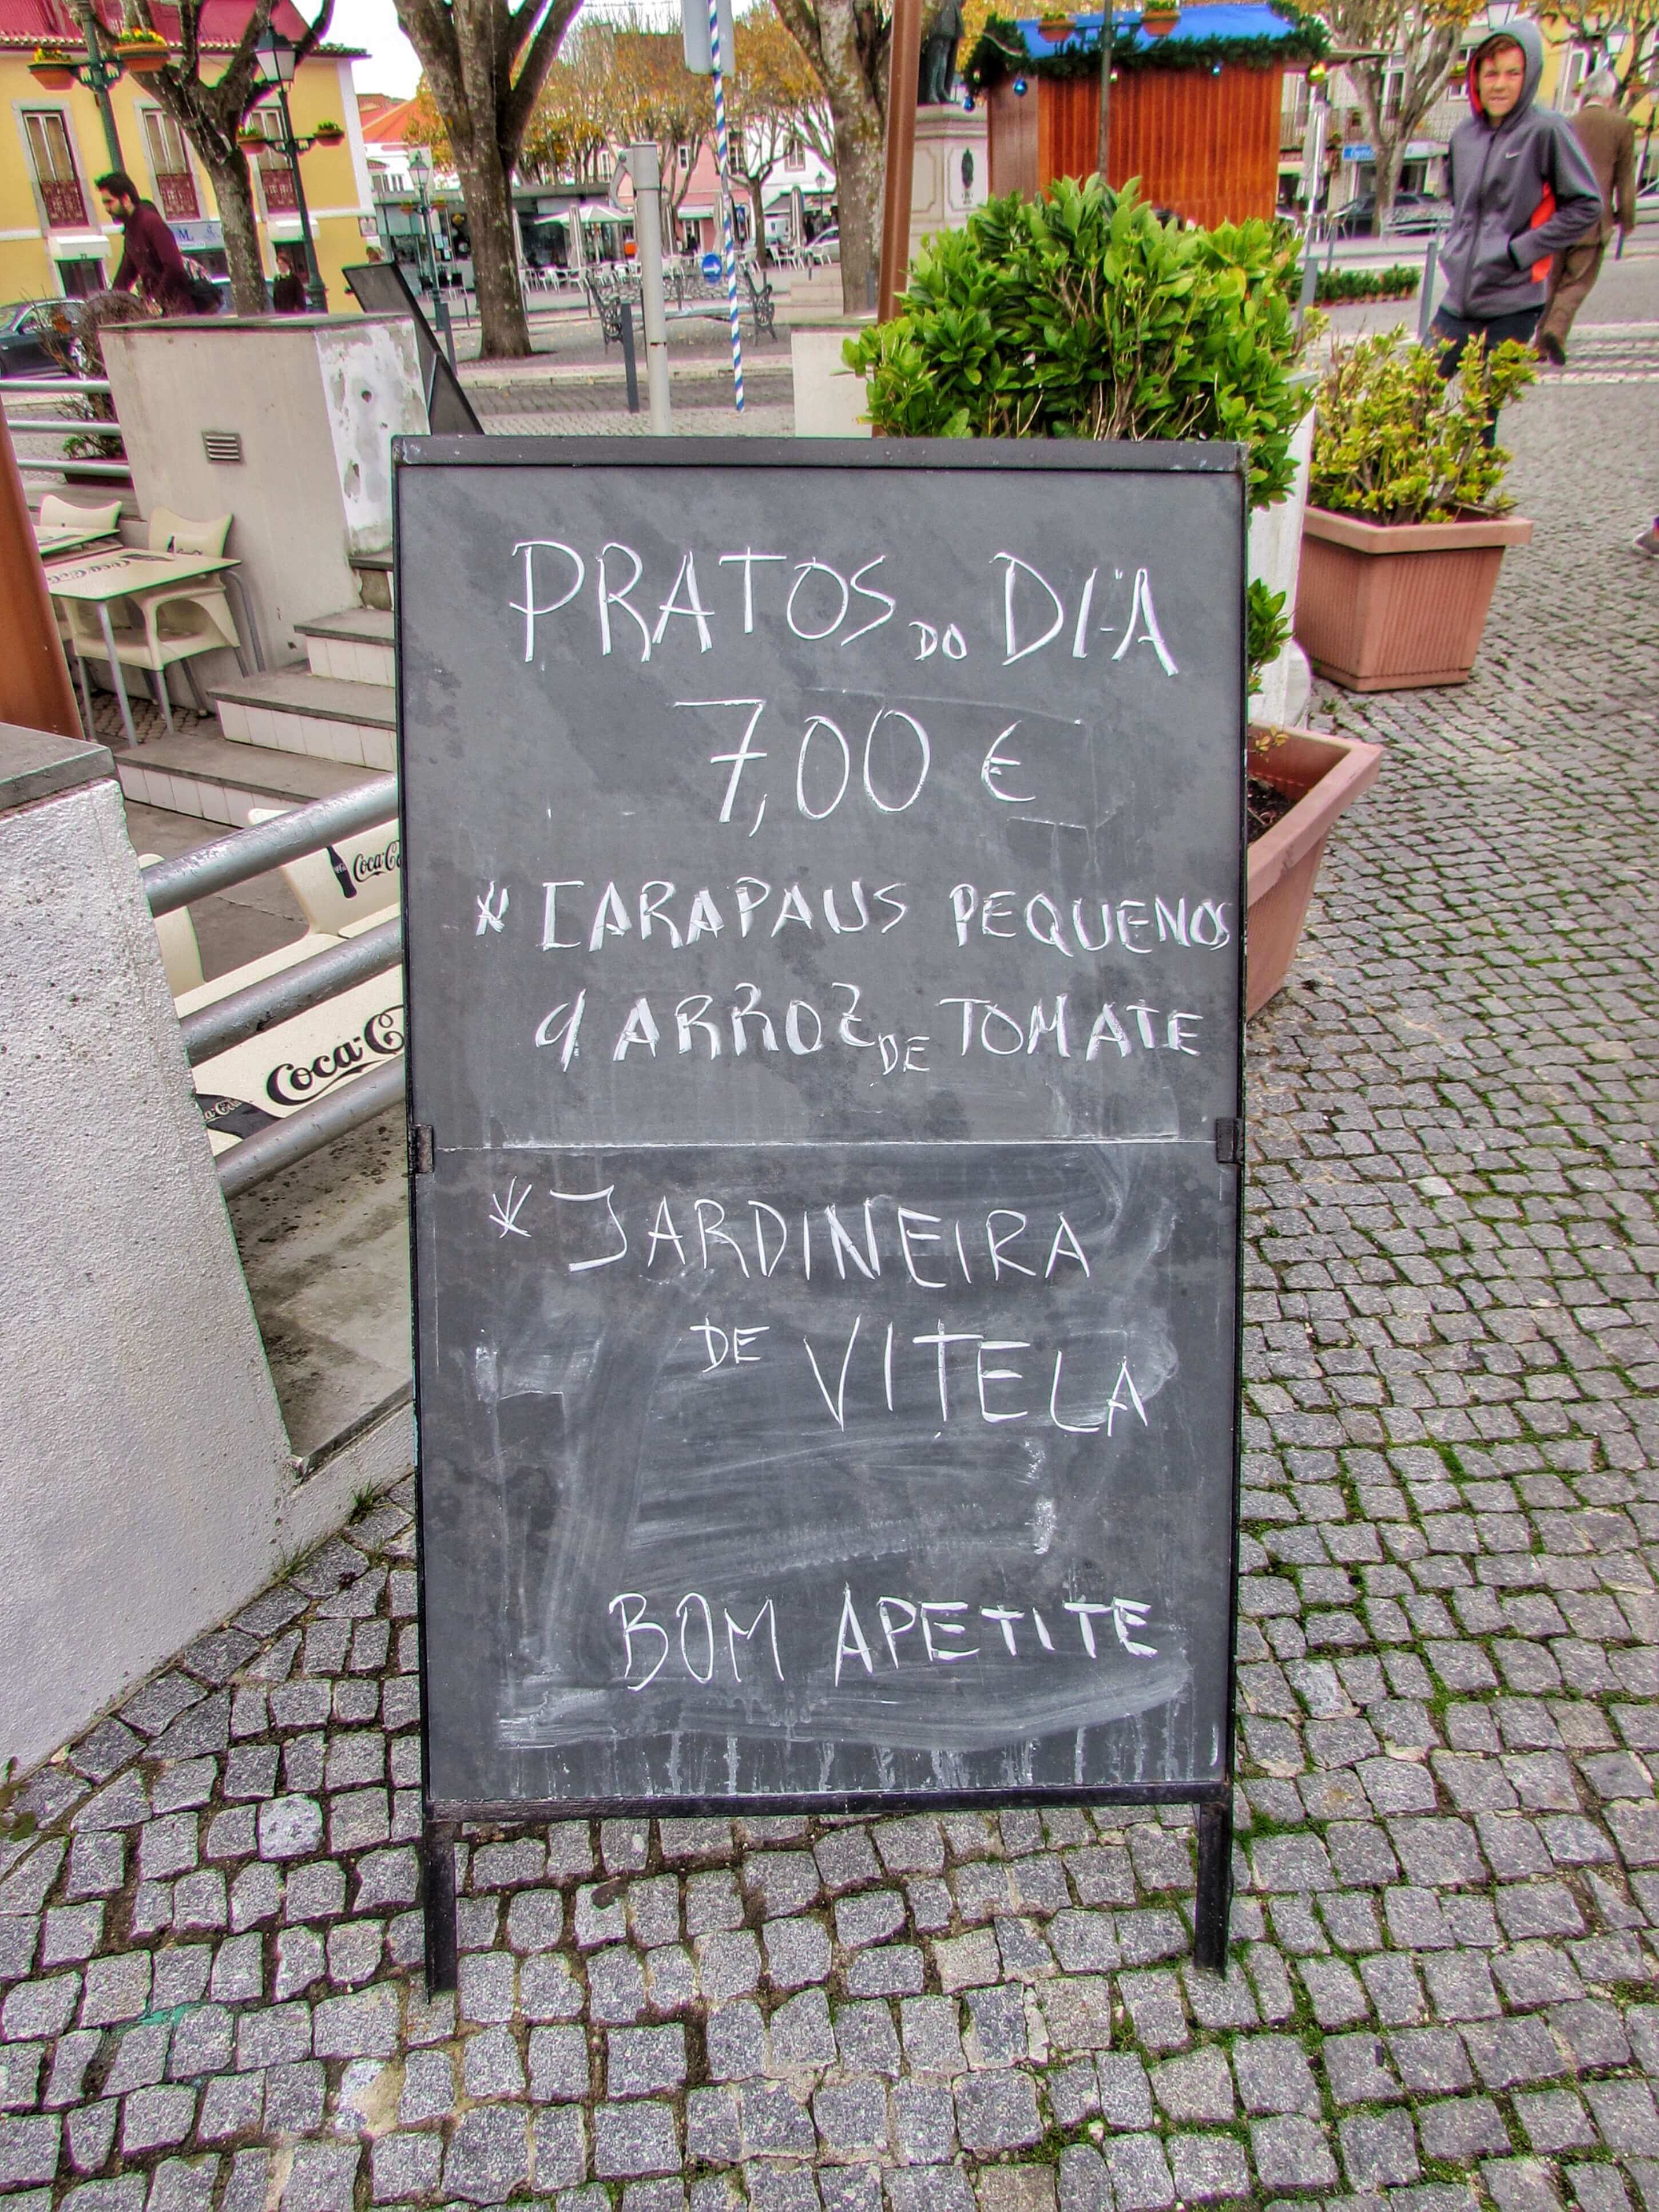 PRATOS DO DIA
7,00 €
* CARAPAUS PEQUENOS
C/ ARROZ DE TOMATE
* JARDINEIRA
DE VITELA
BOM APETITE
Coca-Co
Coca-C